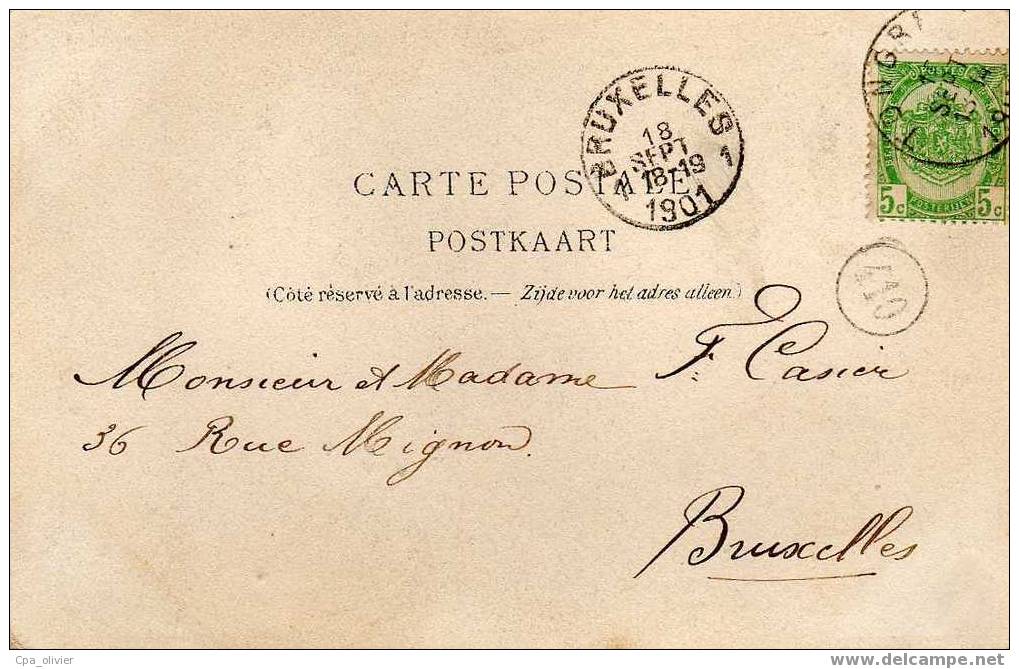 BRUXELLES 1
18
SEPT
18-19
1901
5c POSTERIJEN 5c
CARTE POSTALE
POSTKAART
(Côté réservé à l'adresse. — Zijde voor het adres alleen.)
Monsieur et Madame F. Casier
36 Rue Mignon.
Bruxelles
Cpa_olivier
www.delcampe.net